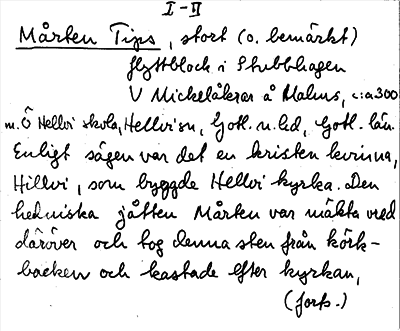 I-II
Mårten Tips, stort (o. bemärkt)
flyttblock i Stubbhagen
V Mickelåkrar å Malms, c:a 300
m. Ö Hellvi skola, Hellvi sn, Gotl. n. hd, Gotl. län.
Enligt sägen var det en kristen kvinna,
Hillvi, som byggde Hellvi kyrka. Den
hedniska jätten Mårten var mäkta vred
däröver och tog denna sten från körk-
backen och kastade efter kyrkan,
(forts.)